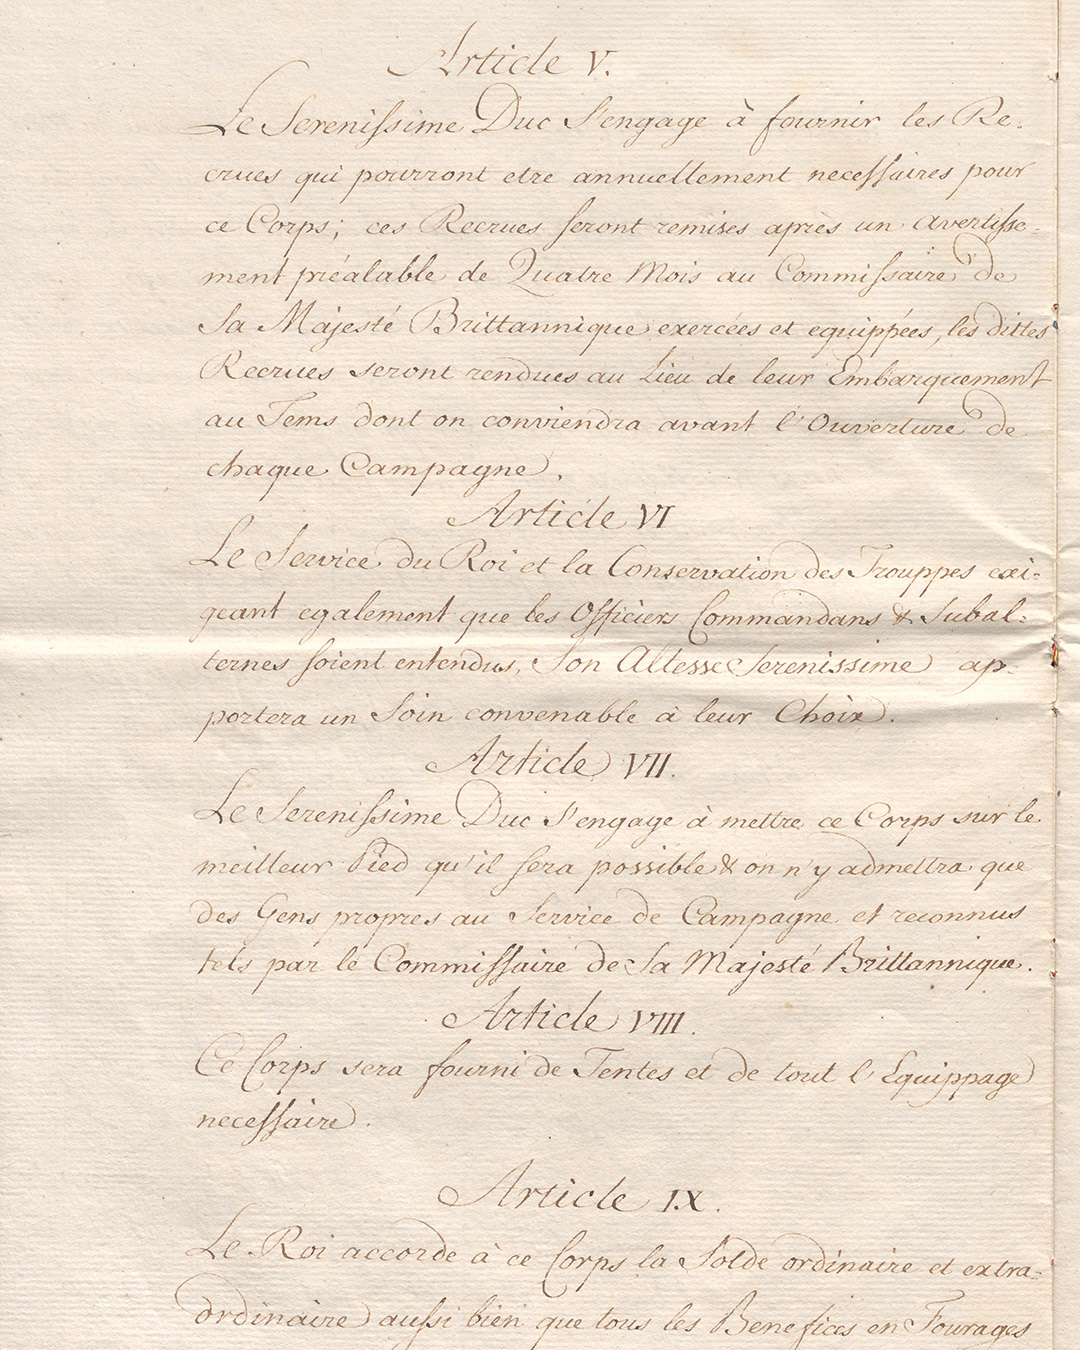 Article V.
Le Serenissime Duc s'engage à fournir les Re-
crues qui pourront etre annuellement necessaires pour
ce Corps; ces Recrues seront remises après un avertisse-
ment préalable de Quatre Mois au Commissaire de
Sa Majesté Brittannique exercées et equippées, les dittes
Recrues seront rendues au Lieu de leur Embarquement
au Tems dont on conviendra avant l'Ouverture de
chaque Campagne.
Article VI
Le Service du Roi et la Conservation des Trouppes exi-
geant egalement que les Officiers Commandans & Subal-
ternes soient entendus, Son Altesse Serenissime ap-
portera un Soin convenable à leur Choix.
Article VII.
Le Serenissime Duc s'engage à mettre ce Corps sur le
meilleur Pied qu'il sera possible & on n'y admettra que
des Gens propres au Service de Campagne et reconnus
tels par le Commissaire de Sa Majesté Brittannique.
Article VIII.
Ce Corps sera fourni de Tentes et de tout l'Equippage
necessaire.
Article IX.
Le Roi accorde à ce Corps la Solde ordinaire et extra-
ordinaire aussi bien que tous les Benefices en Fourages